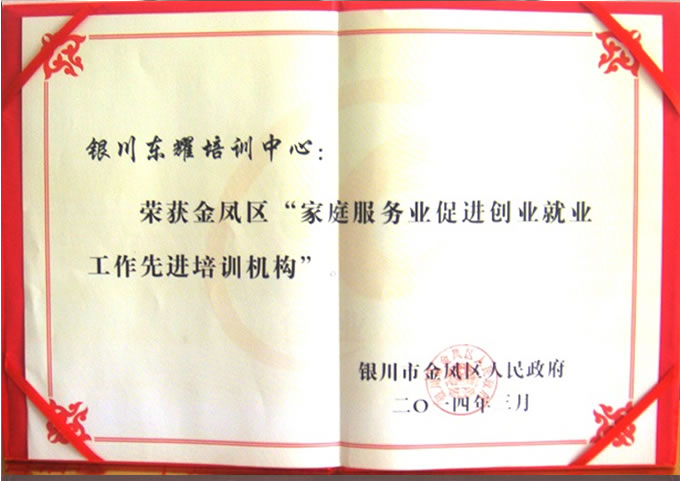 银川东耀培训中心：
荣获金凤区“家庭服务业促进创业就业
工作先进培训机构”。
银川市金凤区人民政府
二〇一四年三月